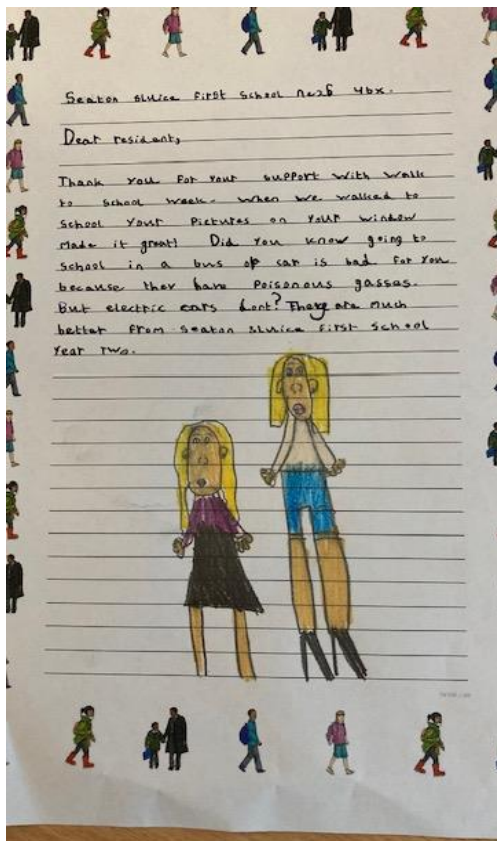 Seaton Sluice First School ne26 4bx.
Dear resident,
Thank you for your support with walk
to school week. When we walked to
school your pictures on your window
made it great! Did you know going to
school in a bus or car is bad for you
because they have poisonous gasses.
But electric cars dont? They are much
better from Seaton Sluice First School
Year Two.